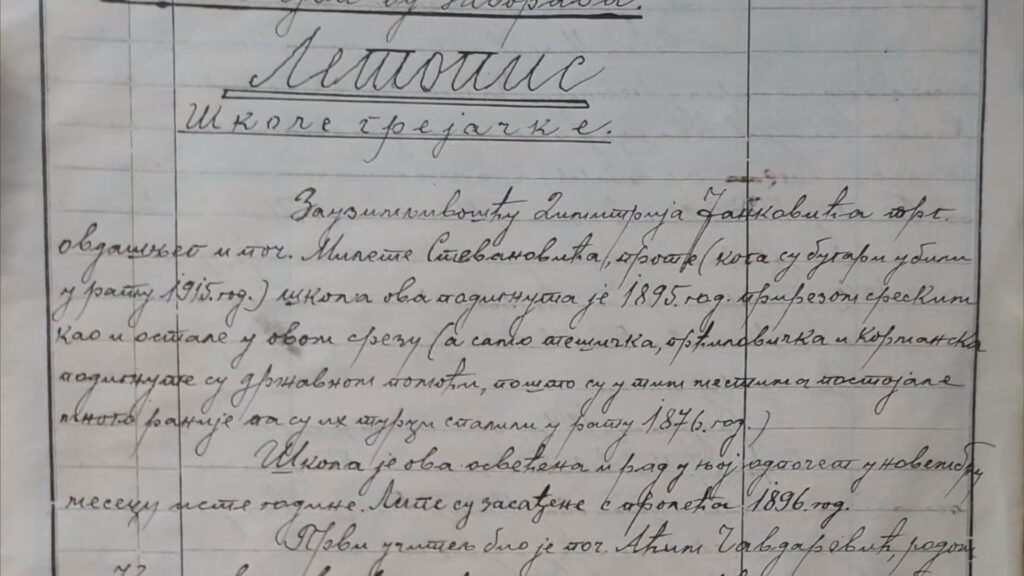 од заборава.
Летопис
Школе грејачке.
Заузимљивошћу Димитрија Јанковића трг.
овдашњег и поч. Милете Стевановића, проте (кога су бугари убили
у рату 1915. год.) школа ова подигнута је 1895. год. прирезом среским
као и остале у овом срезу (а само тешичка, прћиловичка и Корманска
подигнуте су државном помоћи, пошто су у тим местима постојале
много раније па су их турци спалили у рату 1876. год.)
Школа је ова освећена и рад у њој одпочет у новембру
месецу исте године. Липе су засађене с пролећа 1896. год.
Први учитељ био је поч. Аћим Чавдаревић, родом